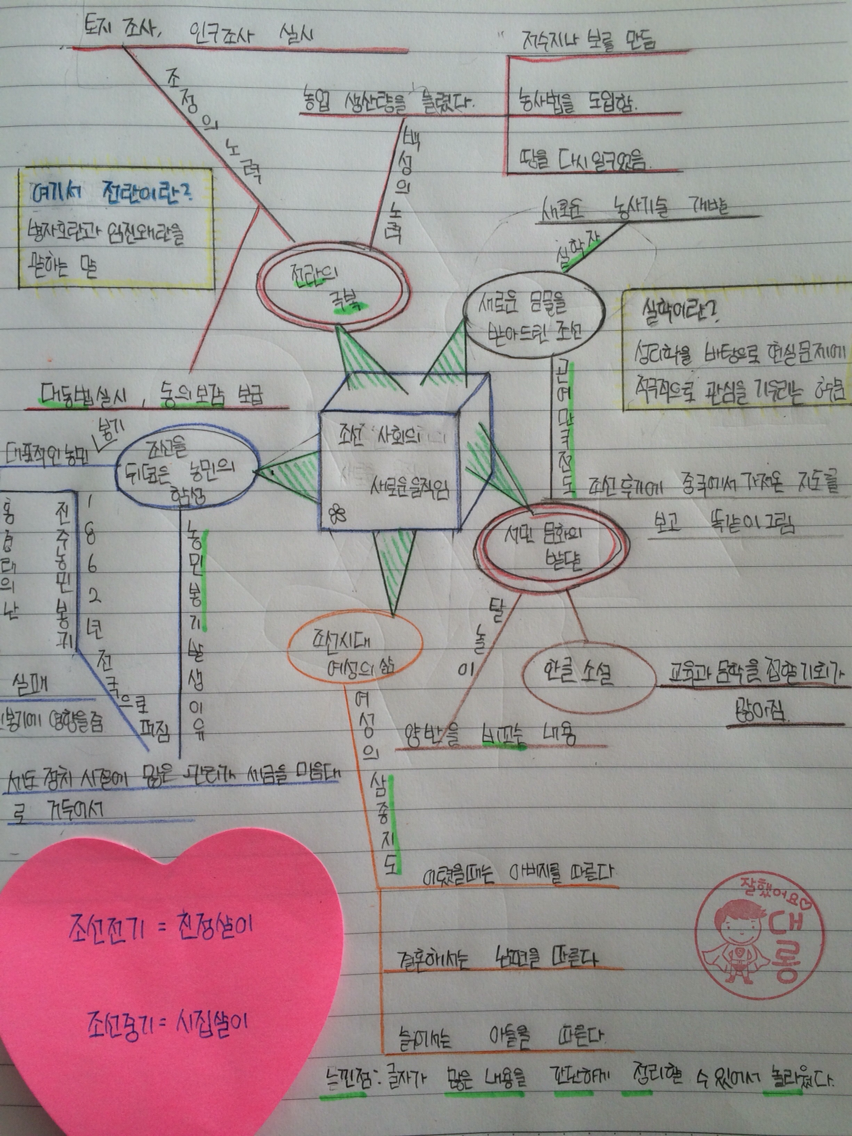 토지 조사, 인구조사 실시
조정의 노력
농업 생산량을 늘렸다.
백성의 노력
저수지나 보를 만듦
농사법을 도입함.
땅을 다시 일구었음.
여기서 전란이란?
병자호란과 임진왜란을
말하는 말
전란의
극복
대동법실시, 동의보감 보급
새로운 농사기술 개발
실학자
새로운 문물을
받아드린 조선
실학이란?
성리학을 바탕으로 현실문제에
적극적으로 관심을 기울이는 학문
곤여만국전도
조선후기에 중국에서 가져온 지도를
보고 똑같이 그림
조선 사회의
새로운 움직임
조선을
뒤덮은 농민의
함성
대표적인 농민
봉기
진주농민봉기
1862년
전국으로
퍼짐
실패
봉기에 영향을줌
농민봉기 발생이유
세도 정치 시절에 많은 관리가 세금을 마음대
로 거두어서
서민 문화의
발달
탈놀이
양반을 비꼬는 내용
한글 소설
교육과 문학을 접할기회가
많아짐
조선시대
여성의 삶
여성의 삼종지도
어렸을때는 아버지를 따른다
결혼해서는 남편을 따른다
늙어서는 아들을 따른다.
조선전기 = 친정살이
조선중기 = 시집살이
잘했어요♡
대롱
느낀점: 글자가 많은 내용을 간단하게 정리할 수 있어서 놀라웠다.